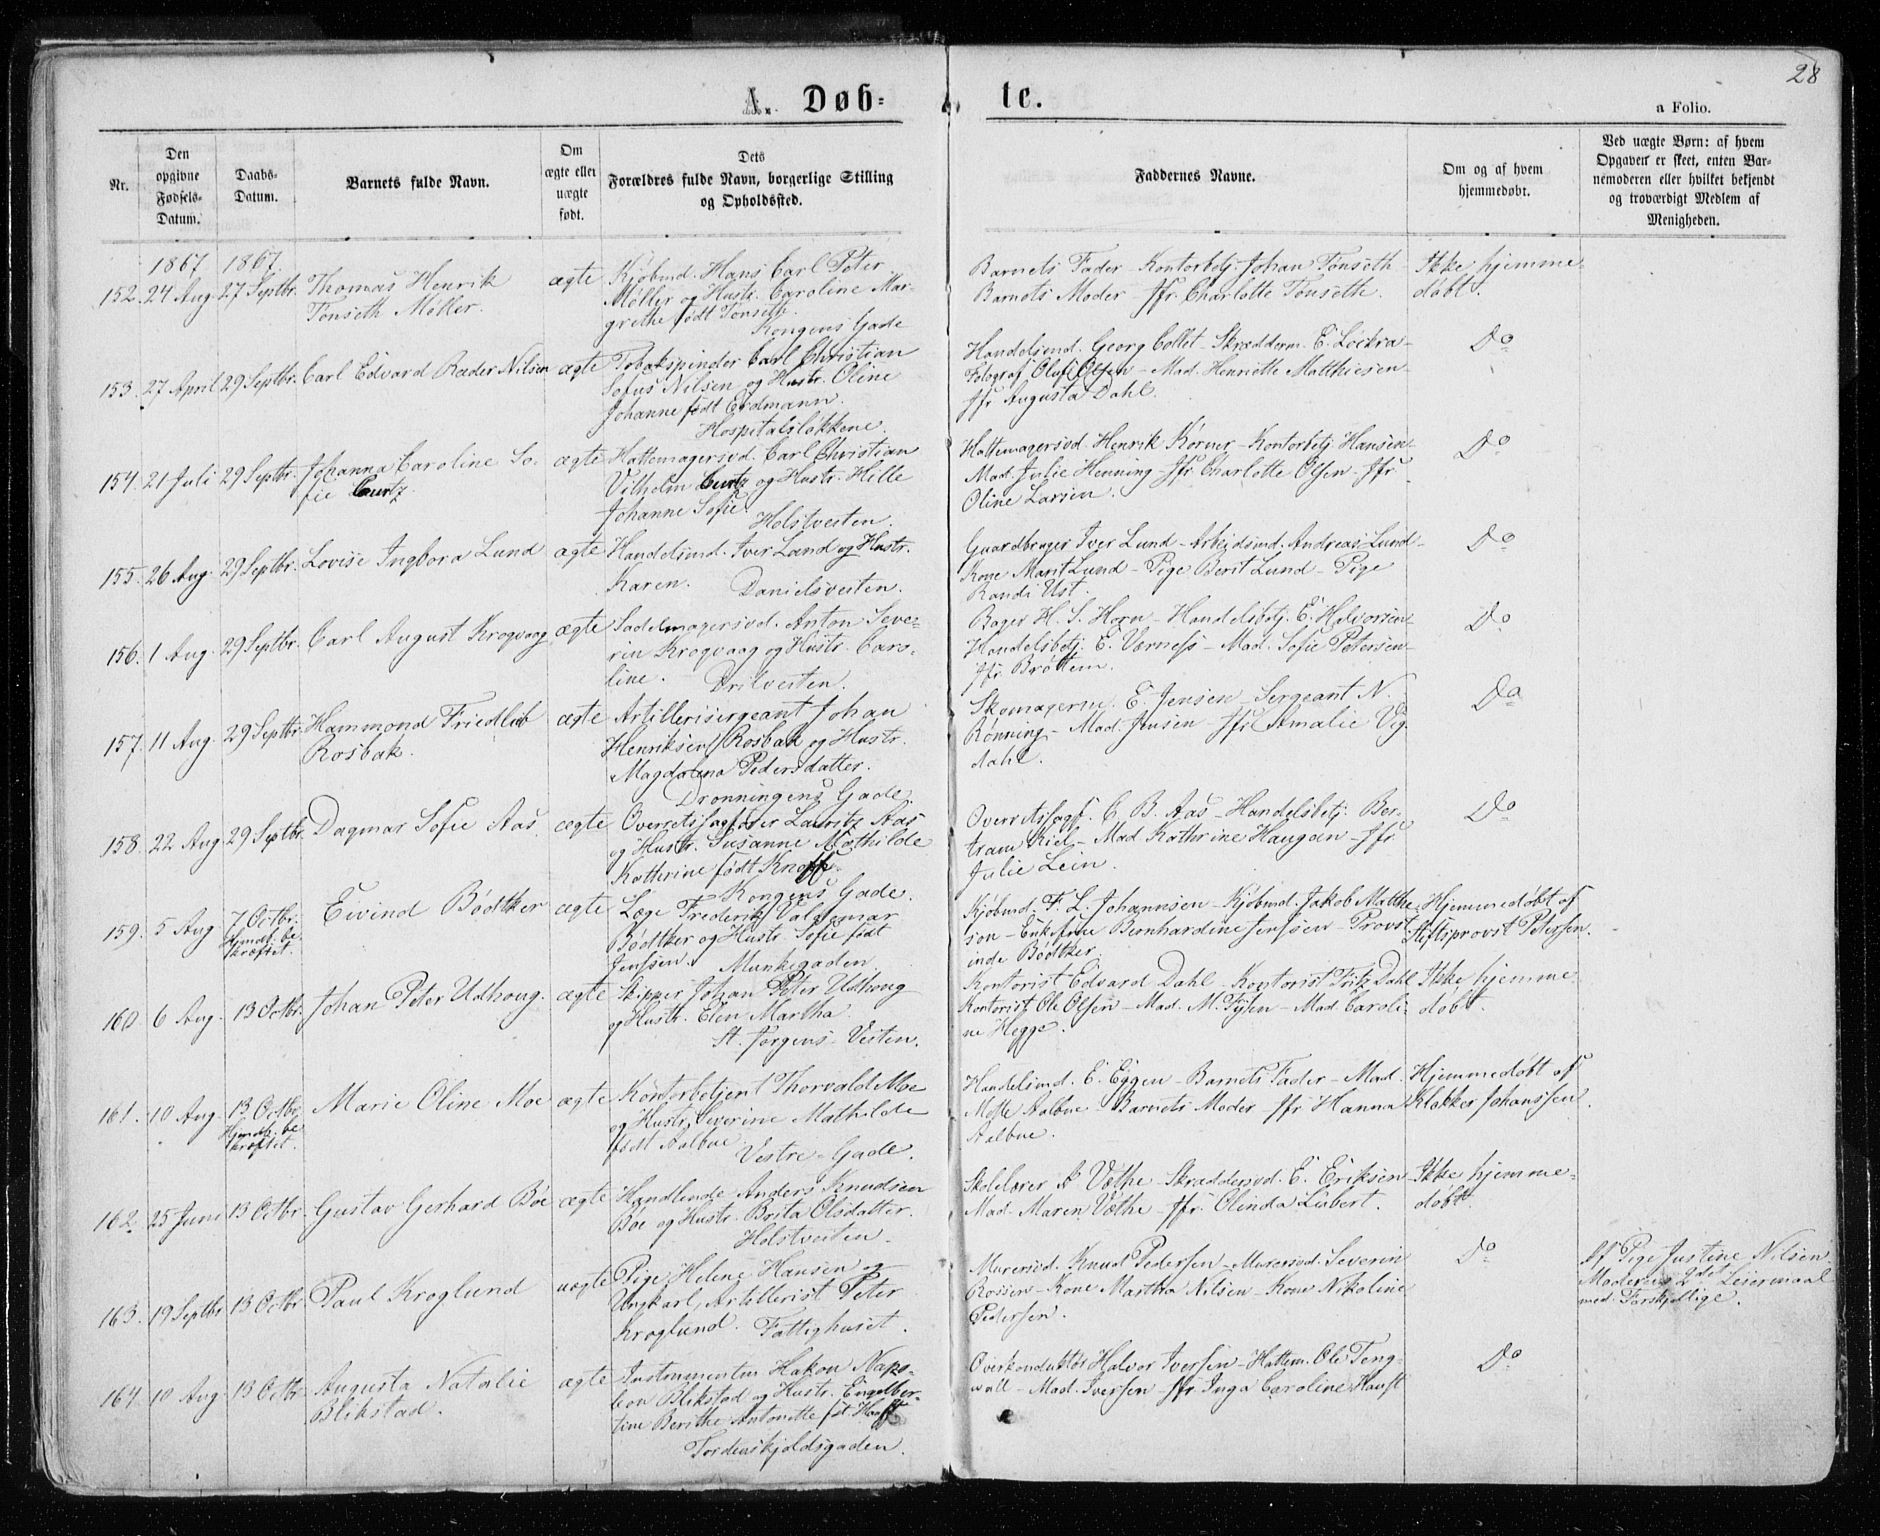 28
A. Døb-
te.
a Folio.
Nr.
Den
opgivne
Fødsels-
Datum.
Daabs-
Datum.
Barnets fulde Navn.
Om
ægte eller
uægte
født.
Dets
Forældres fulde Navn, borgerlige Stilling
og Opholdssted.
Faddernes Navne.
Om og af hvem
hjemmedøbt.
Ved uægte Børn: af hvem
Opgaven er skeet, enten Bar-
nemoderen eller hvilket bekjendt
og troværdigt Medlem af
Menigheden.
1867 1867
152. 24 Aug. 27 Septbr. Thomas Henrik
Tønseth Møller.
ægte
Kjøbmd. Hans Carl Peter
Møller og Hustr. Caroline Mar-
grethe født Tønseth.
Kongens Gade
Barnets Fader - Kontorbetj. Johan Tønseth
Barnets Moder Jfr. Charlotte Tønseth.
Ikke hjemme
døbt.
153. 27 April 29 Septbr. Carl Edvard Ræder Nilsen
ægte
Tobakspinder Carl Christian
Sofus Nilsen og Hustr. Oline
Johanne født Erdmann.
Hospitalsløkkene.
Handelsmd. Georg Collet - Skrædderm. E. Løckra-
Fotograf Oluf Olsen - Mad. Henriette Matthiesen-
Jfr. Augusta Dahl.
Do
154. 21 Juli 29 Septbr. Johanna Caroline So-
fie Curtz
ægte
Hattemagersvd. Carl Christian
Vilhelm Curtz og Hustr. Hille
Johanne Sofie.
Holstvesten.
Hattemagersvd. Henrik Körner - Kontorbetj. Hansen-
Mad. Julie Henning - Jfr. Charlotte Olsen - Jfr.
Oline Larsen.
Do
155. 26 Aug. 29 Septbr. Lovise Ingbora Lund
ægte
Handelsmd. Iver Lund og Hustr.
Karen. Danielsvesten.
Gaardbruger Iver Lund - Arbeidsmd. Andreas Lund-
Kone Marit Lund - Pige Berit Lund - Pige
Randi Ust.
Do
156. 1 Aug. 29 Septbr. Carl August Krogvaag
ægte
Sadelmagersvd. Anton Seve-
rin Krogvaag og Hustr. Caro-
line. Drilvesten.
Bager H. S. Horn - Handelsbetj. E. Halvorsen
Handelsbetj. E. Værness - Mad. Sofie Petersen-
Jfr. Brøttem.
Do
157. 11 Aug. 29 Septbr. Hammond Friedlieb
Rosbak.
ægte
Artillerisergeant Johan
Henriksen Rosbak og Hustr.
Magdalena Pedersdatter.
Dronningens Gade.
Skomagerm. E. Jensen - Sergeant N.
Rønning - Mad. Jensen - Jfr. Amalie Vig-
dahl.
Do
158. 22 Aug. 29 Septbr. Dagmar Sofie Aas.
ægte
Overretssagfører Lauritz Aas
og Hustr. Susanne Mathilde
Kathrine født Knoff.
Kongens Gade.
Overretssagf. C. B. Aas - Handelsbetj. Ber-
tram Kiel - Mad. Kathrine Haugan - Jfr.
Julie Lein.
Do
159. 5 Aug 7 Octbr. Eivind Bødtker
Hjmdb. be-
kræftet.
ægte
Læge Frederik Valdemar
Bødtker og Hustr. Sofie født
Jenssen. Munkegaden
Kjøbmd. F. L. Johannsen - Kjøbmd. Jakob Matthe-
son - Enkefrue Bernhardine Jenssen - Provst-
inde Bødtker
Hjemmedøbt af
Stiftsprovst Petersen.
160. 6 Aug. 13 Octbr. Johan Peter Udhoug.
ægte
Skipper Johan Peter Udhoug
og Hustr. Elen Martha.
St. Jørgens Vesten.
Kontorist Edvard Dahl - Kontorist Fritz Dahl
Kontorist Ole Olsen - Mad. M. Tysen - Mad. Caroli-
ne Hegge.
Ikke hjemme
døbt.
161. 10 Aug. 13 Octbr. Marie Oline Moe
Hjmdb. be-
kræftet.
ægte
Kontorbetjent Thorvald Moe
og Hustr. Severine Mathilde
født Aalbue.
Vestre Gade.
Handelsmd. E. Eggen - Barnets Fader - Mad.
Mette Aalbue - Barnets Moder Jfr. Hanna
Aalbue.
Hjemmedøbt af
Klokker Johanssen.
162. 25 Juni 13 Octbr. Gustav Gerhard Bøe
ægte
Handlende Anders Knudsen
Bøe og Hustr. Brita Olsdatter.
Holstvesten.
Skolelærer A. Væthe - Skræddersvd. E. Eriksen
Mad. Maren Væthe - Jfr. Olinda Lübert.
Ikke hjemme-
døbt.
163. 19 Septbr. 13 Octbr. Paul Kroglund
uægte
Pige Helene Hansen og
Ungkarl, Artillerist Peter
Kroglund. Fattighuset.
Murersvd. Knud Pedersen - Murersvd. Severin
Rossen - Kone Martha Nilsen - Kone Nikoline
Pedersen.
Do
Af Pige Justine Nilsen
Moderens 2det Leiermaal
med Forskjellige.
164. 10 Aug 13 Octbr. Augusta Natalie
Blikstad.
ægte
Instrumentm. Hakon Napo-
leon Blikstad og Hustr. Engelber-
tine Berithe Antonette født Hanff
Tordenskjoldsgaden.
Overkonduktør Halvor Iversen - Hattem. Ole Teng-
wall - Mad. Iversen - Jfr. Inga Caroline Hanff
Do